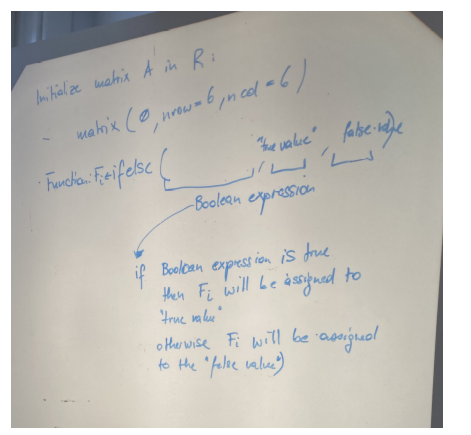 Initialize matrix A in R:
- matrix (0, nrow=6, ncol=6)
"true value", false-value
· Function: Fi ← ifelse (
Boolean expression
if Boolean expression is true
then Fi will be assigned to
"true value"
otherwise Fi will be assigned
to the "false value")